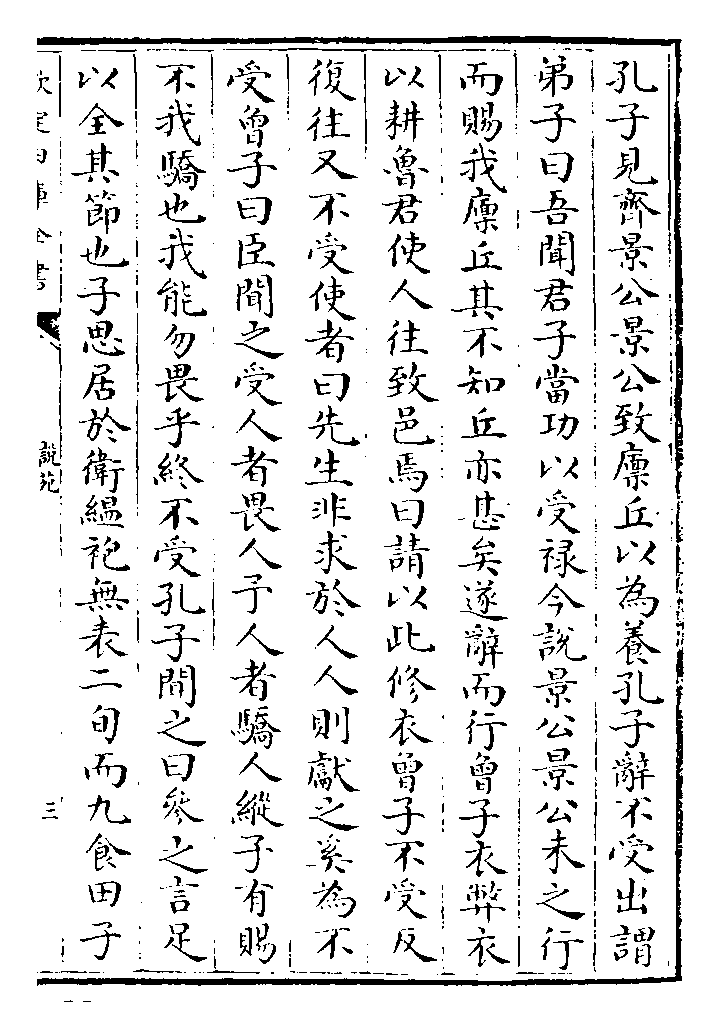 孔子見齊景公景公致廩丘以為養孔子辭不受出謂
弟子曰吾聞君子當功以受禄今說景公景公未之行
而賜我廩丘其不知丘亦甚矣遂辭而行曾子衣弊衣
以耕魯君使人往致邑焉曰請以此修衣曾子不受反
復往又不受使者曰先生非求於人人則獻之奚為不
受曾子曰臣聞之受人者畏人予人者驕人縱子有賜
不我驕也我能勿畏乎終不受孔子聞之曰參之言足
以全其節也子思居於衛縕袍無表二旬而九食田子
欽定四庫全書
說苑
三